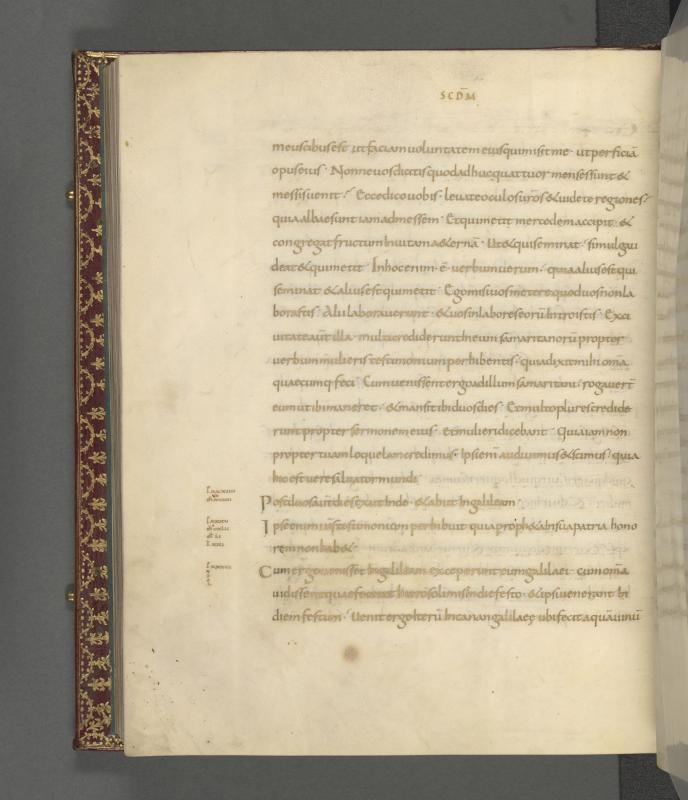 SCDM̄
meus cibus est ut faciam voluntatem eius qui misit me · ut perficiā
opus eius · Nonne vos dicitis quod adhuc quattuor menses sunt &
messis venit · Ecce dico vobis · levate oculos vr̄os & videte regiones ·
quia albae sunt iam ad messem · Et qui metit mercedem accipit · &
congregat fructum in vitam aeternā · Ut & qui seminat · simul gau
deat & qui metit · In hoc enim · ē · verbum verum · quia alius est qui
seminat · & alius est qui metit · Ego misi vos metere quod vos non la
borastis · Alii laboraverunt · & vos in labores eorū introistis · Ex ci
vitate aūt illa · multi crediderunt in eum samaritanorū propter
verbum mulieris testimonium perhibentis · quia dixit mihi om̄a
quaecumq; feci · Cum venissent ergo ad illum samaritani · rogavert̄
eum ut ibi maneret · & mansit ibi duos dies · Et multo plures credide
runt propter sermonem eius · et mulieri dicebant · Quia iam non
propter tuam loquelam credimus · Ipsi enī audivimus & scimus · quia
hic est vere salvator mundi
Post duos aūt dies exiit inde · & abiit in galileam ·
Ipse enim ih̄s testimonium perhibuit quia proph&a in sua patria hono
rem non hab&
Cum ergo venisset in galileam exceperunt eum galilaei · cum om̄a
vidissent quae fecerat hierosolimis in die festo · & ipsi venerant in
diem festum · Venit ergo iterū in canan galilaeę ubi fecit aquā vinū